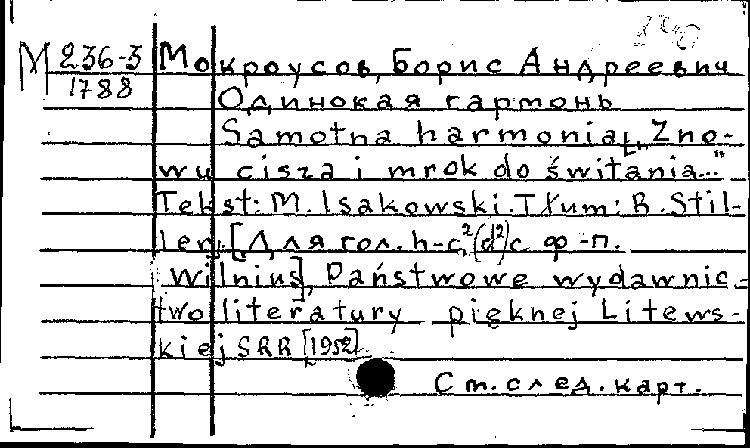 М 236-3 Мокроусов, Борис Андреевич
1788
Одинокая гармонь
Samotna harmonia [„Zno-
wu cisza i mrok do świtania..."
Tekst: M. Isakowski. Tłum: R. Stil-
ler. [Для гол. h-c²(d²) с ф-п.
Wilnius], Państwowe wydawnic-
two literatury pięknej Litews-
kiej SRR [1952]
См. след. карт.